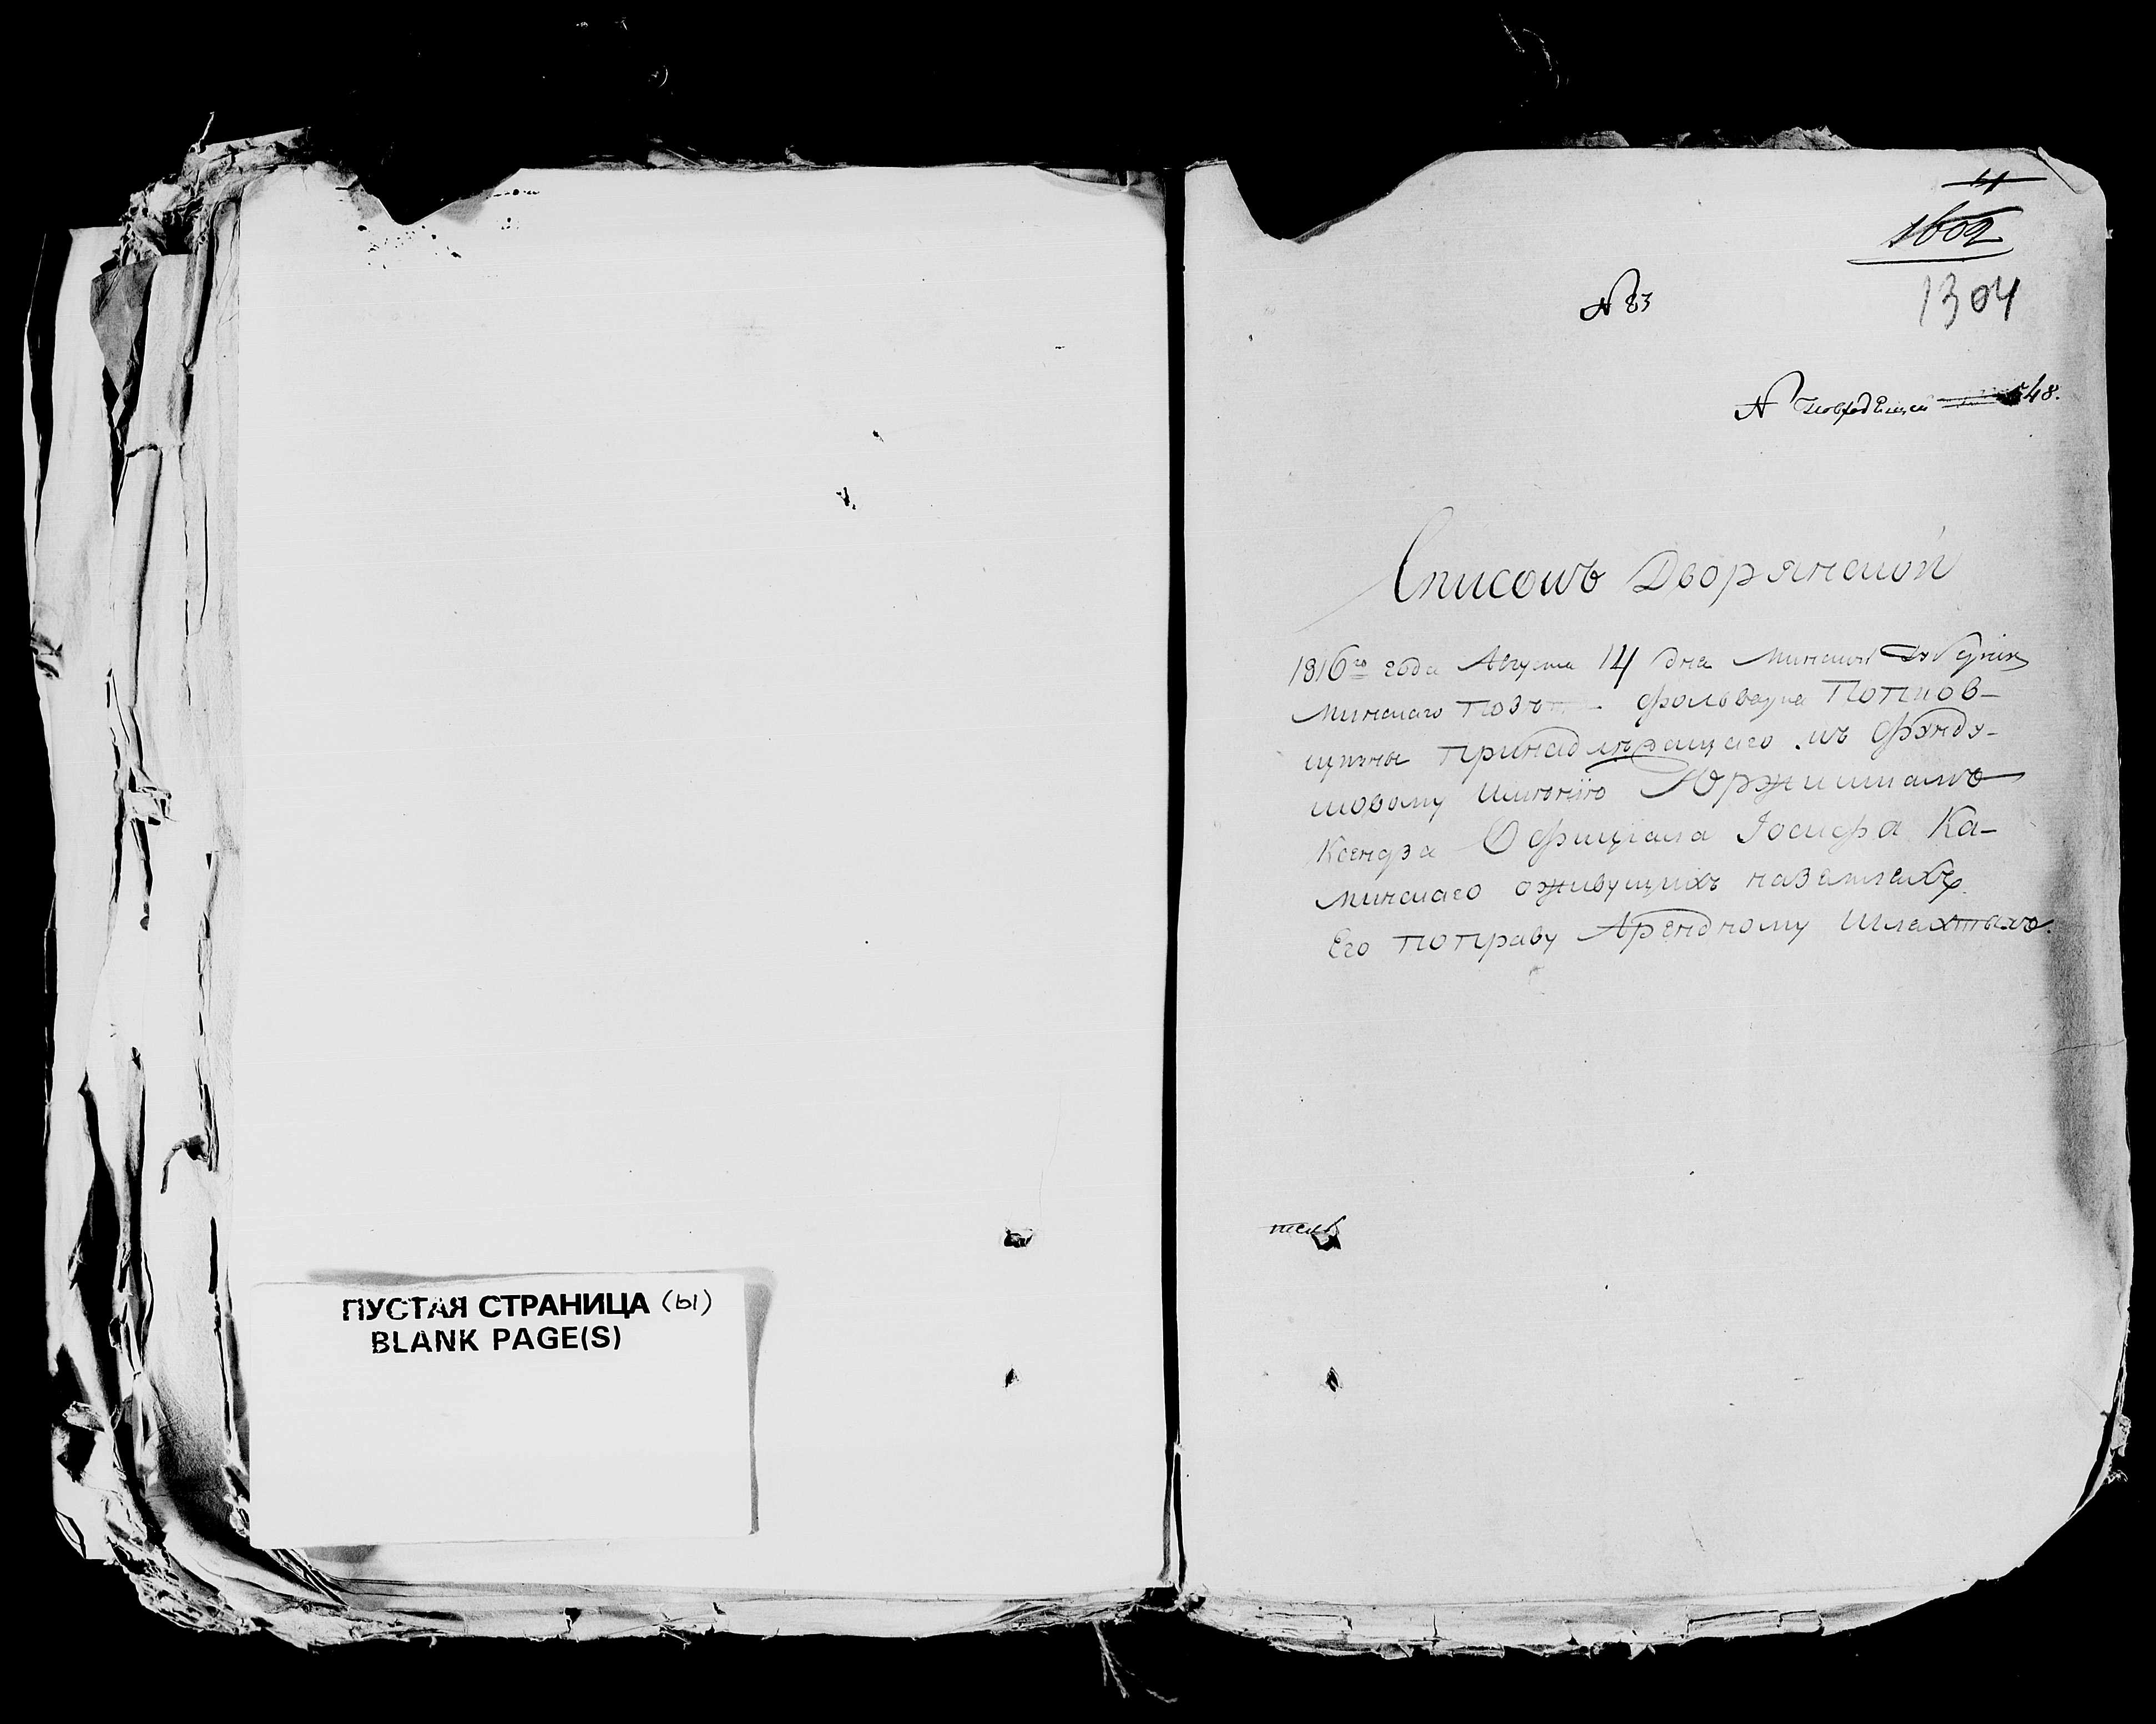 ПУСТАЯ СТРАНИЦА (Ы)
BLANK PAGE(S)
1602
1304
№ 83
№ 548.
Списокъ Дворянской
1816го года Августа 14 дня Минской Губерніи
Минскаго Повѣта фольварка
принадлежащаго къ Фунду-
шовому имѣнію
Ксендза Официала Іосифа Ка-
минскаго оживущихъ на земляхъ
Его по праву Арендному Шляхтыхъ.
тель